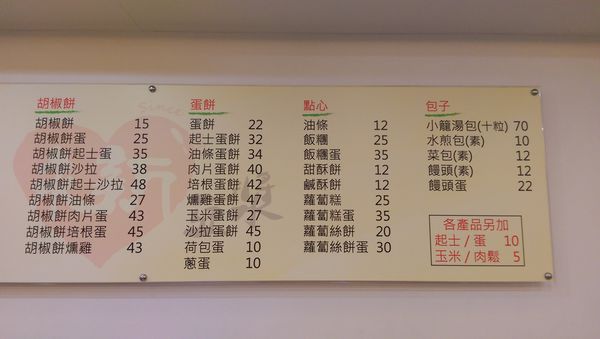 胡椒餅
胡椒餅 15
胡椒餅蛋 25
胡椒餅起士蛋 35
胡椒餅沙拉 38
胡椒餅起士沙拉 48
胡椒餅油條 27
胡椒餅肉片蛋 43
胡椒餅培根蛋 45
胡椒餅燻雞 43
蛋餅
蛋餅 22
起士蛋餅 32
油條蛋餅 34
肉片蛋餅 40
培根蛋餅 42
燻雞蛋餅 47
玉米蛋餅 27
沙拉蛋餅 45
荷包蛋 10
蔥蛋 10
點心
油條 12
飯糰 25
飯糰蛋 35
甜酥餅 12
鹹酥餅 12
蘿蔔糕 25
蘿蔔糕蛋 35
蘿蔔絲餅 20
蘿蔔絲餅蛋 30
包子
小籠湯包(十粒) 70
水煎包(素) 10
菜包(素) 12
饅頭(素) 12
饅頭蛋 22
各產品另加
起士/蛋 10
玉米/肉鬆 5
Since